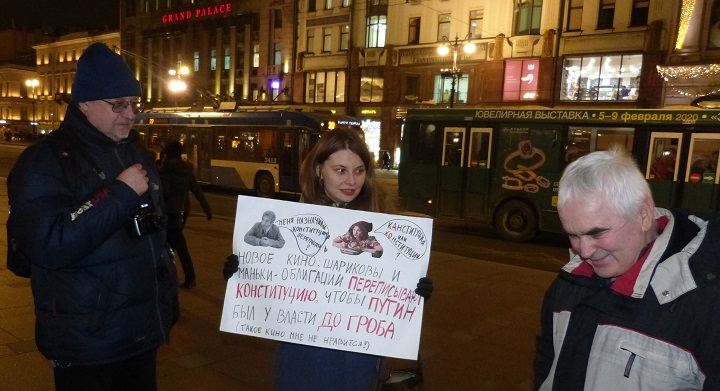 GRAND PALACE
ЮВЕЛИРНАЯ ВЫСТАВКА 5-9 февраля 2020
МЕНЯ НАЗНАЧИЛИ
КОНСТИТУЦИЮ
КАНСТИТУЦИЯ
ИЛИ
КОНСТИТУЦИЯ?
НОВОЕ КИНО: ШАРИКОВЫ И
МАНЬКИ-ОБЛИГАЦИИ ПЕРЕПИСЫВАЮТ
КОНСТИТУЦИЮ, ЧТОБЫ ПУТИН
БЫЛ У ВЛАСТИ ДО ГРОБА
(ТАКОЕ КИНО МНЕ НЕ НРАВИТСЯ!)